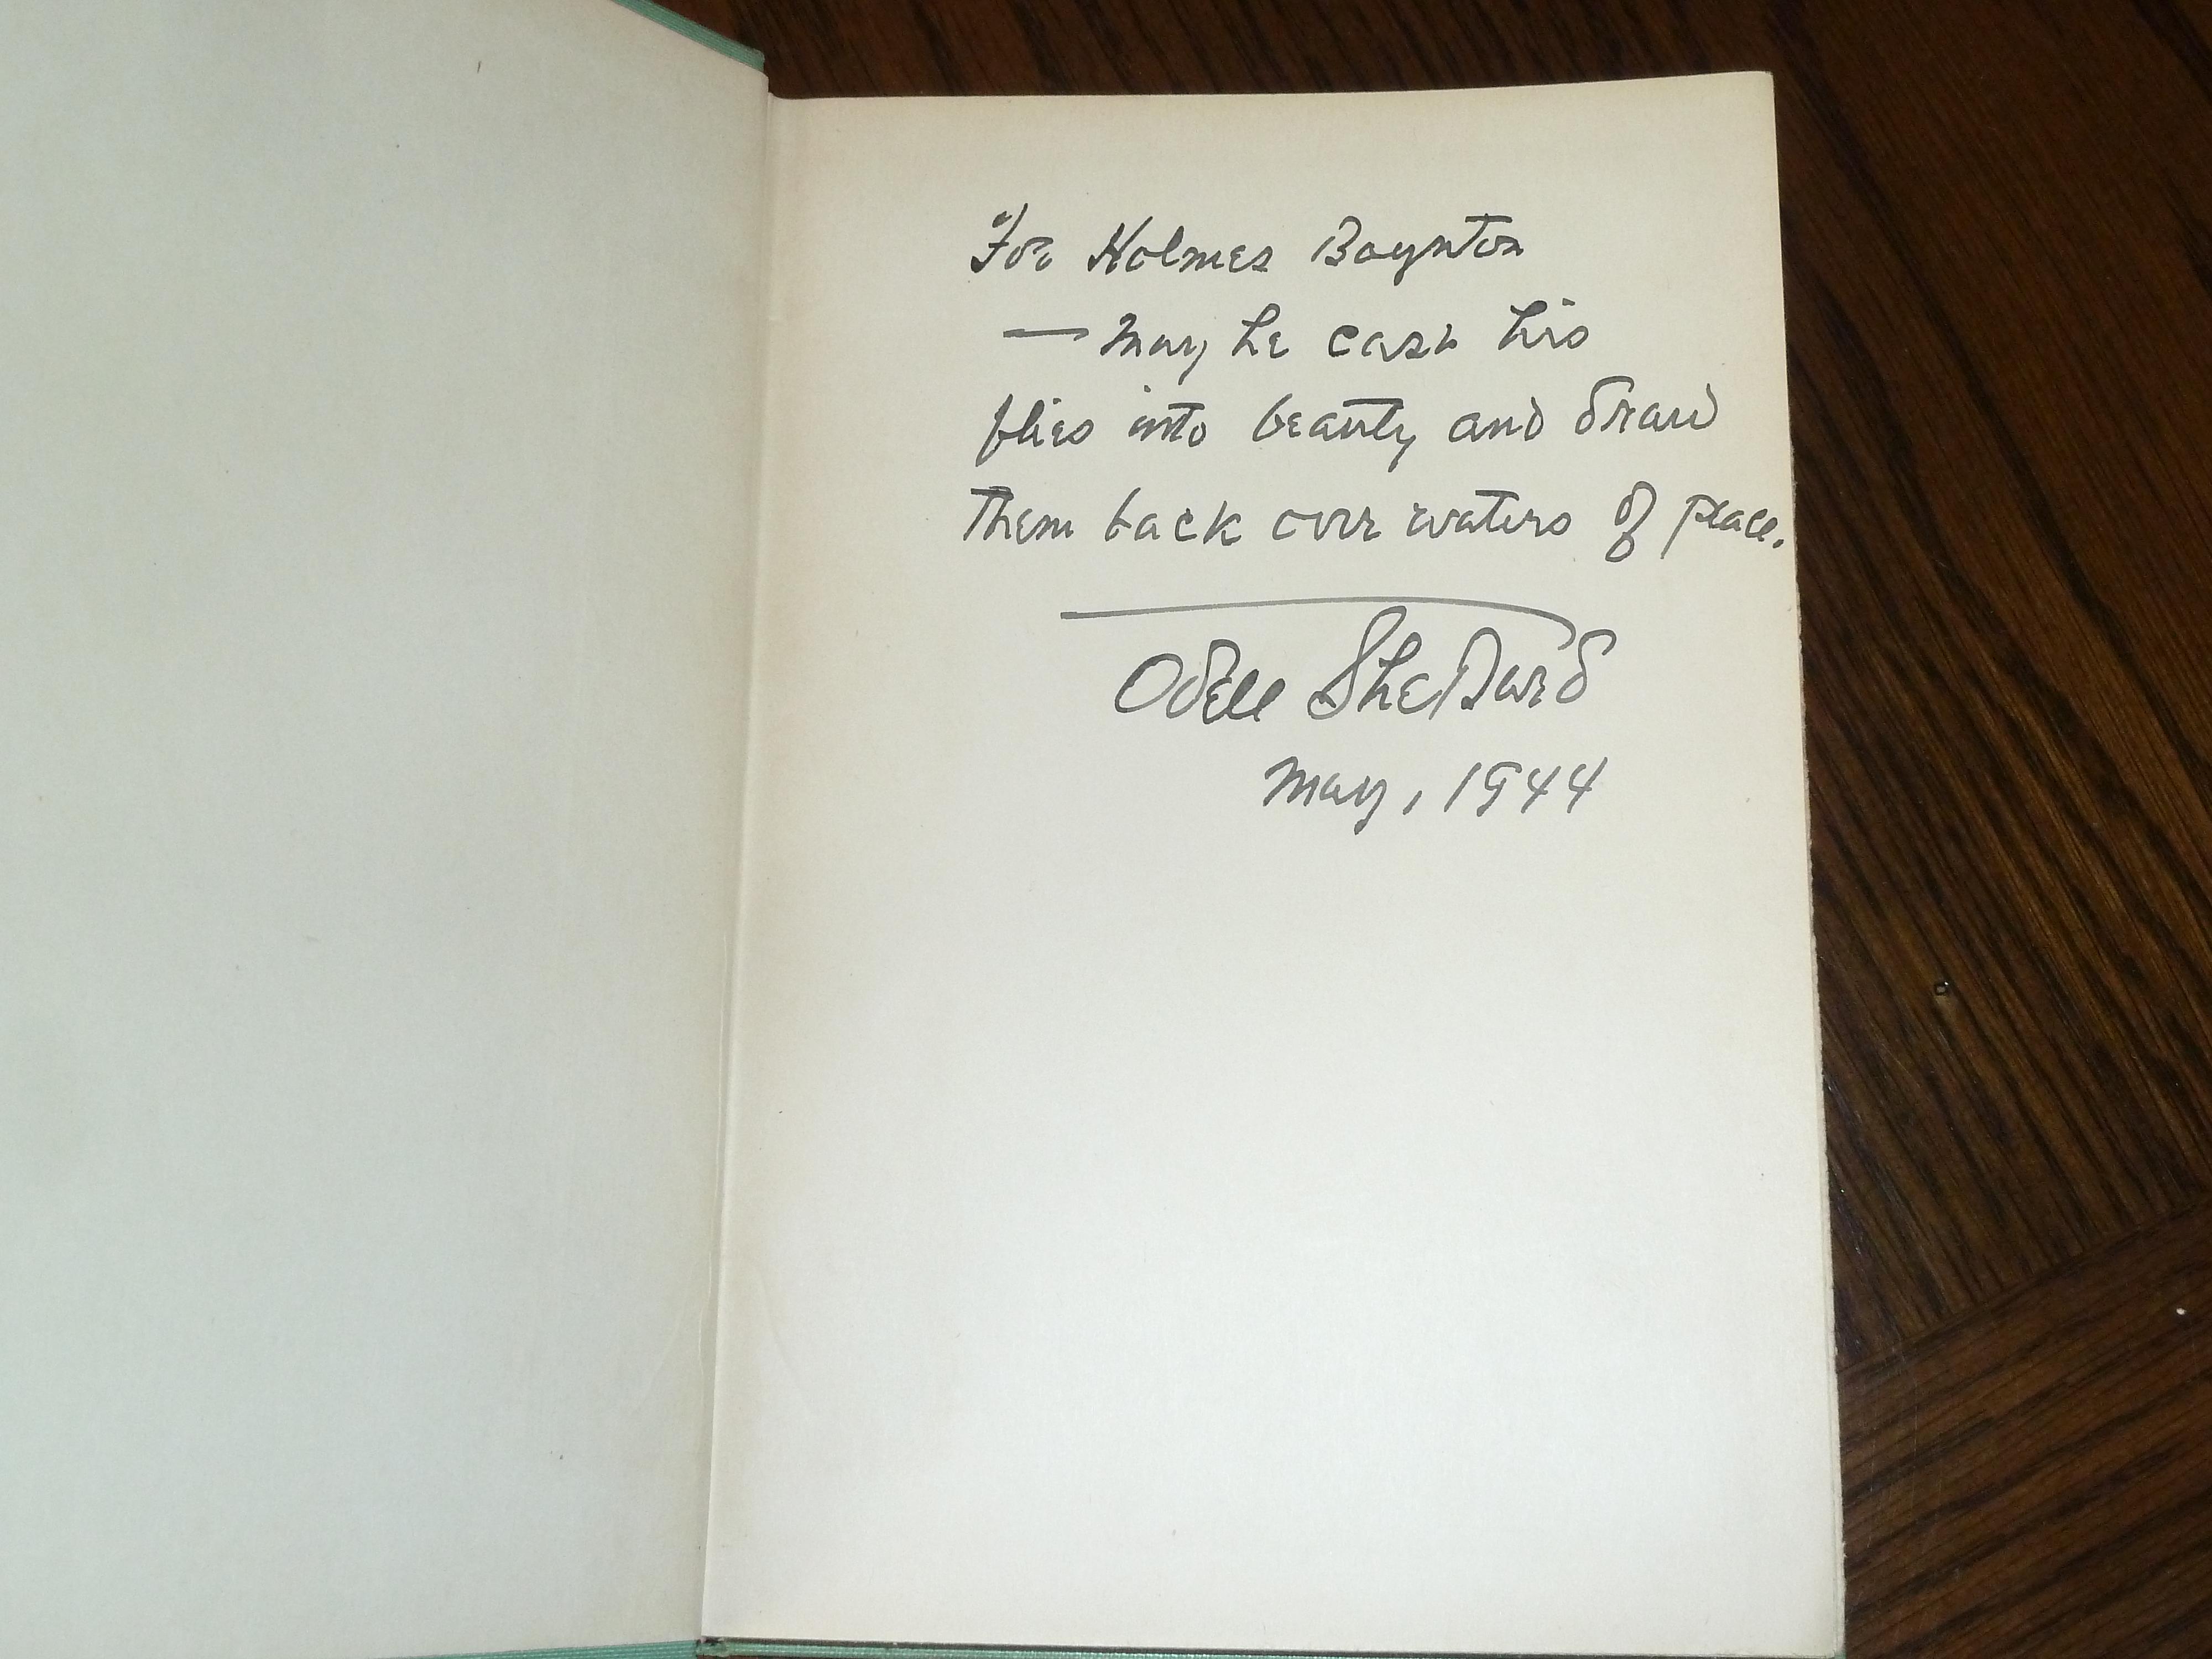 For Holmes Boynton
— May he cast his
flies into beauty and draw
them back over waters of peace.
Odell Shepard
May, 1944